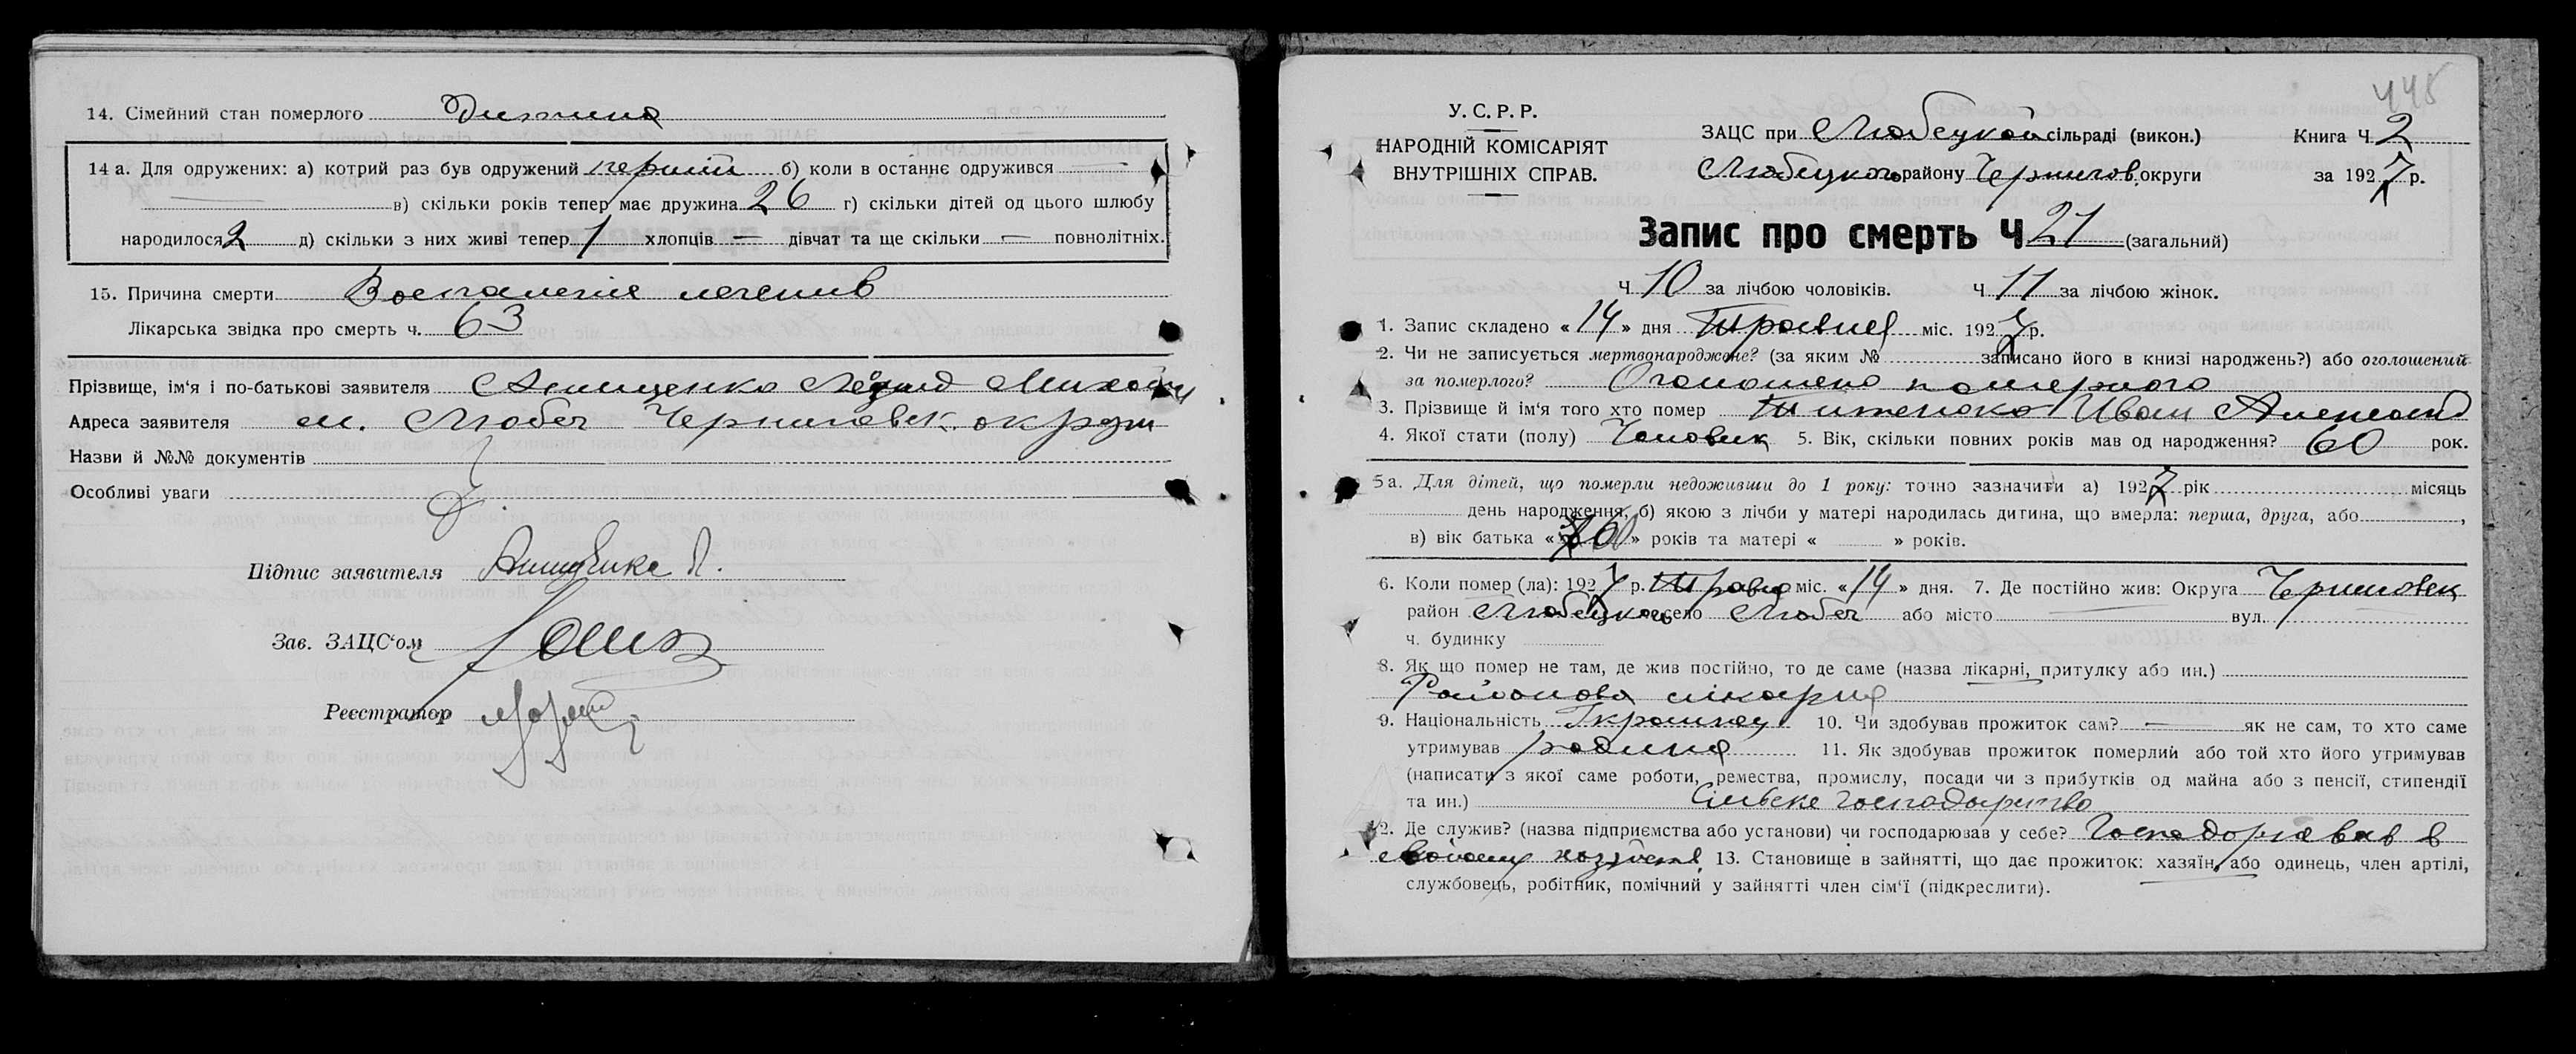 14. Сімейний стан померлого Дитина
14 а. Для одружених: а) котрий раз був одружений перший б) коли в останнє одружився —
— в) скільки років тепер має дружина 26 г) скільки дітей од цього шлюбу
народилося 2 д) скільки з них живі тепер 1 хлопців — дівчат та ще скільки — повнолітніх.
15. Причина смерти Воспаление легенив
Лікарська звідка про смерть ч. 63
Прізвище, ім'я і по-батькові заявителя Анищенко
Адреса заявителя м. Любеч Черниговск. округи
Назви й №№ документів
Особливі уваги
Підпис заявителя
Зав. ЗАЦС'ом
Реєстратор
445
У. С. Р. Р.
НАРОДНІЙ КОМІСАРІЯТ
ВНУТРІШНІХ СПРАВ.
ЗАЦС при Любецкой сільраді (викон.)
Любецкого району Чернигов. округи
Книга Ч. 2
за 1927 р.
Запис про смерть Ч 21 (загальний)
Ч 10 за лічбою чоловіків. Ч 11 за лічбою жінок.
1. Запис складено « 14 » дня Травня міс. 1927 р.
2. Чи не записується мертвонароджене? (за яким № записано його в книзі народжень?) або оголошений
за померлого? Оголошено померлого
3. Прізвище й ім'я того хто помер Иван
4. Якої стати (полу) Чоловик 5. Вік, скільки повних років мав од народження? 60 рок.
5 а. Для дітей, що померли недоживши до 1 року: точно зазначити а) 1927 рік місяць
день народження, б) якою з лічби у матері народилась дитина, що вмерла: перша, друга, або ,
в) вік батька « » років та матері « » років.
6. Коли помер (ла): 1927 р. Травня міс. « 14 » дня. 7. Де постійно жив: Округа
район село Любеч або місто — вул.
ч. будинку
8. Як що помер не там, де жив постійно, то де саме (назва лікарні, притулку або ин.)
Районова лікарня
9. Національність 10. Чи здобував прожиток сам? — як не сам, то хто саме
утримував родина 11. Як здобував прожиток померлий або той хто його утримував
(написати з якої саме роботи, ремества, промислу, посади чи з прибутків од майна або з пенсії, стипендії
та ин.) Сильске господарство
12. Де служив? (назва підприємства або установи) чи господарював у себе? Господарював в
своему хозяйстві 13. Становище в зайнятті, що дає прожиток: хазяїн, або одинець, член артілі,
службовець, робітник, помічний у зайнятті член сім'ї (підкреслити).